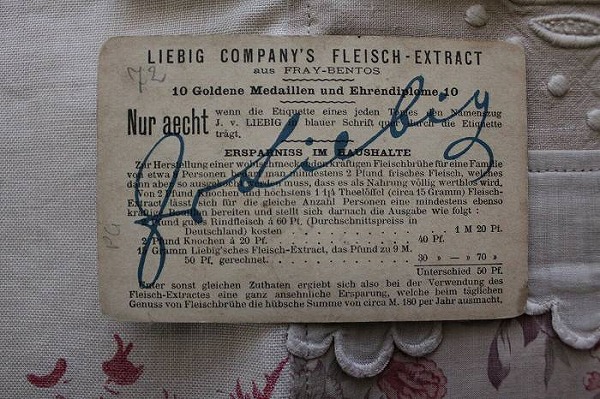 LIEBIG COMPANY'S FLEISCH-EXTRACT
aus FRAY-BENTOS
72
10 Goldene Medaillen und Ehrendiplome 10
Nur aecht
wenn die Etiquette eines jeden Topfes den Namenszug
J. v. LIEBIG in blauer Schrift quer durch die Etiquette
trägt.
J v Liebig
ERSPARNISS IM HAUSHALTE
Zur Herstellung einer wohlschmeckenden kräftigen Fleischbrühe für eine Familie
von etwa Personen man mindestens 2 Pfund frisches Fleisch, welches
dann aber so ausgekocht sein muss, dass es als Nahrung völlig werthlos wird.
Von 2 Pfund Knochen und höchstens 1 1/2 Theelöffel (circa 15 Gramm) Fleisch-
Extract lässt sich für die gleiche Anzahl Personen eine mindestens ebenso
kräftige bereiten und stellt sich darnach die Ausgabe wie folgt :
2 Pfund gutes Rindfleisch à 60 Pf. (Durchschnittspreis in
Deutschland) kosten . . . . . 1 M 20 Pf.
2 Pfund Knochen à 20 Pf. . . . . 40 Pf.
15 Gramm Liebig'sches Fleisch-Extract, das Pfund zu 9 M.
50 Pf. gerechnet. . . . . 30 » — » 70 »
Unterschied 50 Pf.
Unter sonst gleichen Zuthaten ergiebt sich also bei der Verwendung des
Fleisch-Extractes eine ganz ansehnliche Ersparung, welche beim täglichen
Genuss von Fleischbrühe die hübsche Summe von circa M. 180 per Jahr ausmacht.
PG